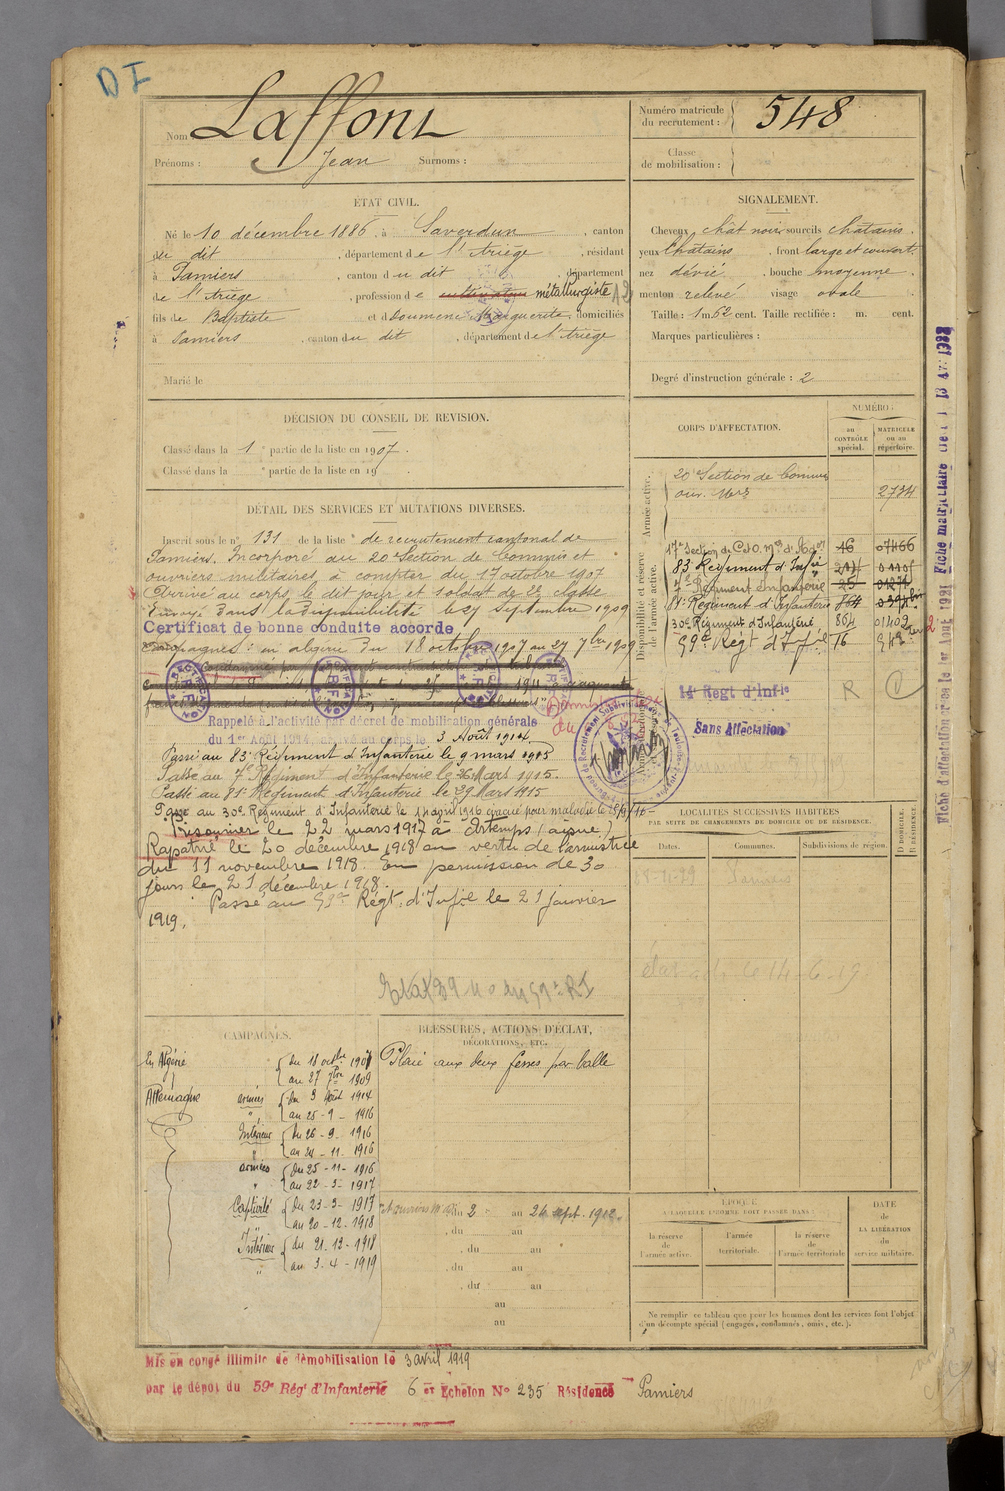 D I
Nom Laffont
Prénoms : Jean Surnoms :
Numéro matricule
du recrutement : 548
Classe
de mobilisation :
ÉTAT CIVIL.
Né le 10 décembre 1886, à Saverdun, canton
du dit, département de l'Ariège, résidant
à Pamiers, canton du dit, département
de l'Ariège, profession de cultivateur métallurgiste
fils de Baptiste et d Doumenc Marguerite, domiciliés
à Pamiers, canton du dit, département de l'Ariège
Marié le
SIGNALEMENT.
Cheveux chât noir sourcils châtains.
yeux châtains, front large et couvert.
nez dévié, bouche moyenne.
menton relevé visage ovale
Taille : 1 m 62 cent. Taille rectifiée : m. cent.
Marques particulières :
Degré d'instruction générale : 2
DÉCISION DU CONSEIL DE REVISION.
Classé dans la 1 e partie de la liste en 1907.
Classé dans la e partie de la liste en 19 .
DÉTAIL DES SERVICES ET MUTATIONS DIVERSES.
Inscrit sous le n° 131 de la liste de recrutement cantonal de
Pamiers. Incorporé au 20e Section de Commis et
ouvriers militaires à compter du 17 octobre 1907
Arrivé au corps le dit jour et soldat de 2e classe
Envoyé dans la disponibilité le 27 septembre 1909
Certificat de bonne conduite accordé
Campagnes : en Algérie du 18 octobre 1907 au 27 7bre 1909
Rappelé à l'activité par décret de mobilisation générale
du 1er Août 1914, arrivé au corps le 3 Août 1914
Passé au 83e Régiment d'Infanterie le 9 mars 1915
Passé au 7e Régiment d'Infanterie le 26 Mars 1915.
Passé au 81e Régiment d'Infanterie le 29 Mars 1915
Passé au 30e Régiment d'Infanterie le 14 avril 1916 évacué pour maladie le 25/9/16
Prisonnier le 22 mars 1917 à Artemps (aisne.)
Rapatrié le 20 décembre 1918 en vertu de l'armistice
du 11 novembre 1918. En permission de 30
jours le 21 décembre 1918.
Passé au 59e Régt. d'Infie le 21 janvier
1919.
CORPS D'AFFECTATION.
NUMÉRO
au
CONTRÔLE
spécial.
MATRICULE
ou au
répertoire.
Armée active.
20e Section de Commis
ouv. Mres 2734
Disponibilité et réserve
de l'armée active.
17e Section de C.O. 16 07466
83e Régiment d'Infie
7e Régiment Infanterie 25
81e Régiment d'Infanterie 864
30e Régiment d'Infanterie 864 01402
59e Regt d'Infie T6
14e Regt d'Infie R
Sans Affectation
LOCALITÉS SUCCESSIVES HABITÉES
PAR SUITE DE CHANGEMENTS DE DOMICILE OU DE RÉSIDENCE.
Dates. Communes. Subdivisions de région. D DOMICILE. R RÉSIDENCE.
Pamiers
CAMPAGNES.
En Algérie du 18 octbre 1907
au 27 7bre 1909
Allemagne armées du 3 Août 1914
au 25-9-1916
Intérieur du 26-9-1916
au 24-11-1916
armées du 25-11-1916
au 22-3-1917
Captivité du 23-3-1917
au 20-12-1918
Intérieur du 21-12-1918
au 3-4-1919
BLESSURES, ACTIONS D'ÉCLAT,
DÉCORATIONS, ETC.
Plaie aux deux fesses par balle
du 2 au 26 sept. 1912.
du au
du au
du au
du au
au
au
ÉPOQUE
À LAQUELLE L'HOMME DOIT PASSER DANS :
la réserve
de
l'armée active.
l'armée
territoriale.
la réserve
de
l'armée territoriale
DATE
de
LA LIBÉRATION
du
service militaire.
Ne remplir ce tableau que pour les hommes dont les services font l'objet
d'un décompte spécial (engagés, condamnés, omis, etc.).
Mis en congé illimité de démobilisation le 3 avril 1919
par le dépôt du 59e Régt d'Infanterie 6 et Echelon No 235 Résidence Pamiers